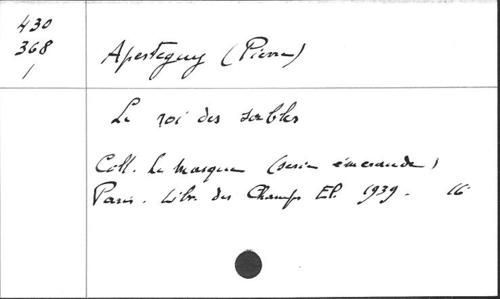 430
368
1
Apesteguy (Pierre)
Le roi des sables
Coll. Le masque (serie émeraude)
Paris. Libr. des Champs El. 1939. 16